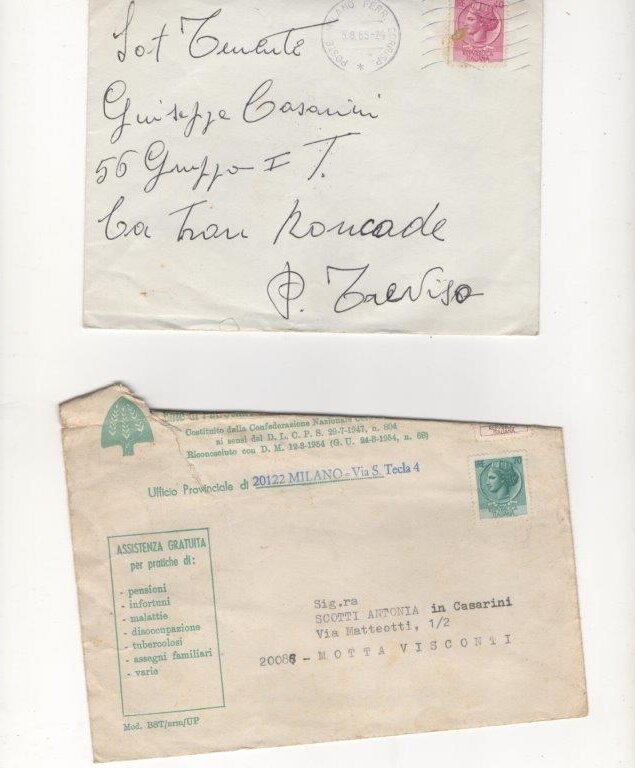 Sot Tenente
Giuseppe Casarini
56 Gruppo I T.
Ca Tron Roncade
P. Treviso
POSTE
REPUBBLICA
ITALIANA
Costituito dalla Confederazione Nazionale
ai sensi del D. L. C. P. S. 29-7-1947, n. 804
Riconosciuto con D. M. 12-8-1954 (G. U. 24-8-1954, n. 88)
Ufficio Provinciale di 20122 MILANO - Via S. Tecla 4
ASSISTENZA GRATUITA
per pratiche di:
- pensioni
- infortuni
- malattie
- disoccupazione
- tubercolosi
- assegni familiari
- varie
Mod. BST/arm/UP
Sig.ra
SCOTTI ANTONIA in Casarini
Via Matteotti, 1/2
20086 - MOTTA VISCONTI